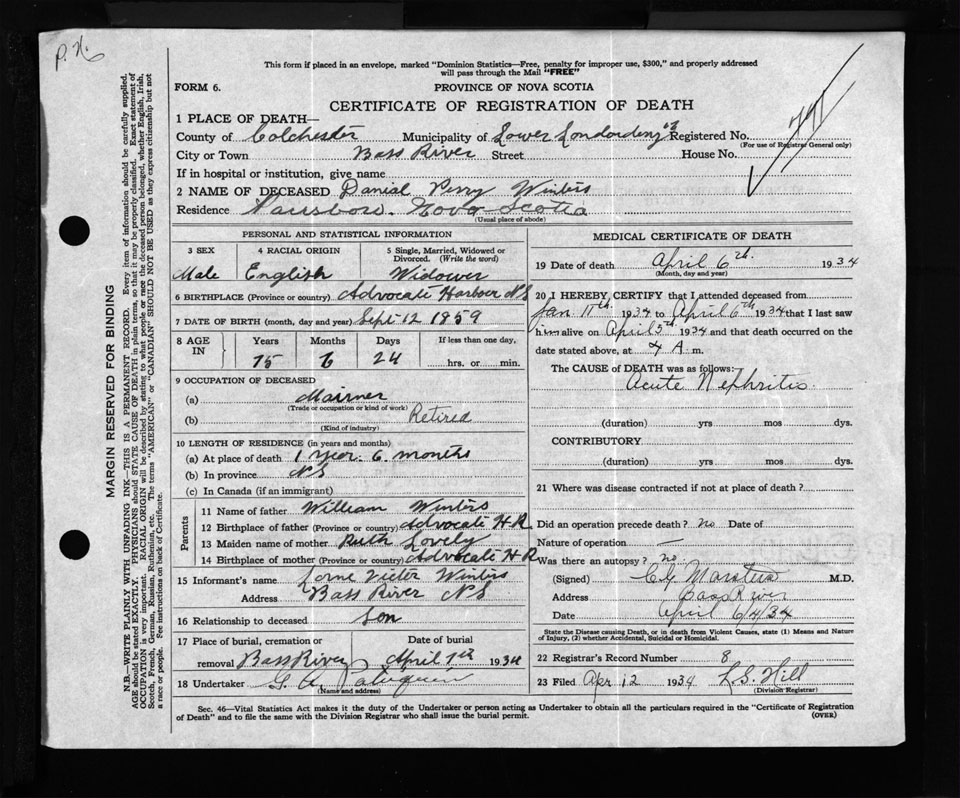 P. N.
This form if placed in an envelope, marked "Dominion Statistics—Free, penalty for improper use, $300," and properly addressed
will pass through the Mail "FREE"
FORM 6.
PROVINCE OF NOVA SCOTIA
CERTIFICATE OF REGISTRATION OF DEATH
1 PLACE OF DEATH—
County of Colchester Municipality of Lower Londonderry Registered No.
(For use of Registrar General only)
City or Town Bass River Street House No.
If in hospital or institution, give name
2 NAME OF DECEASED Danial Perry Winters
Residence Parrsboro. Nova Scotia
(Usual place of abode)
PERSONAL AND STATISTICAL INFORMATION
3 SEX 4 RACIAL ORIGIN 5 Single, Married, Widowed or
Divorced. (Write the word)
Male English Widower
6 BIRTHPLACE (Province or country) Advocate Harbour NS
7 DATE OF BIRTH (month, day and year) Sept 12 1859
8 AGE IN Years Months Days If less than one day,
75 6 24 hrs. or min.
9 OCCUPATION OF DECEASED
(a) Mairner
(Trade or occupation or kind of work)
(b) Retired
(Kind of industry)
10 LENGTH OF RESIDENCE (in years and months)
(a) At place of death 1 year. 6 months
(b) In province NS
(c) In Canada (if an immigrant)
Parents
11 Name of father William Winters
12 Birthplace of father (Province or country) Advocate HR
13 Maiden name of mother Ruth Lovely
14 Birthplace of mother (Province or country) Advocate HR
15 Informant's name Lorne Victer Winters
Address Bass River NS
16 Relationship to deceased Son
17 Place of burial, cremation or Date of burial
removal Bass River April 1934
18 Undertaker G. A.
(Name and address)
MEDICAL CERTIFICATE OF DEATH
19 Date of death April 6th. 1934
(Month, day and year)
20 I HEREBY CERTIFY that I attended deceased from
Jan 11th 1934 to April 6th 1934 that I last saw
him alive on April 5th 1934 and that death occurred on
the date stated above, at 4 A. m.
The CAUSE of DEATH was as follows:
Acute Nephritis.
(duration) yrs mos dys.
CONTRIBUTORY
(duration) yrs mos dys.
21 Where was disease contracted if not at place of death?
Did an operation precede death? no Date of
Nature of operation —
Was there an autopsy? no
(Signed) M.D.
Address Bass River
Date April 6/4/34
State the Disease causing Death, or in death from Violent Causes, state (1) Means and Nature
of Injury, (2) whether Accidental, Suicidal or Homicidal.
22 Registrar's Record Number 8
23 Filed Apr 12 1934 L. S. Hill
(Division Registrar)
Sec. 46—Vital Statistics Act makes it the duty of the Undertaker or person acting as Undertaker to obtain all the particulars required in the "Certificate of Registration
of Death" and to file the same with the Division Registrar who shall issue the burial permit.
(OVER)
MARGIN RESERVED FOR BINDING
N.B.—WRITE PLAINLY WITH UNFADING INK—THIS IS A PERMANENT RECORD. Every item of information should be carefully supplied.
AGE should be stated EXACTLY. PHYSICIANS should STATE CAUSE OF DEATH in plain terms, so that it may be properly classified. Exact statement of
OCCUPATION is very important. RACIAL ORIGIN will be described by stating to what people or race the deceased person belonged, whether English, Irish,
Scotch, French, German, Russian, Ruthenian, etc. The terms "AMERICAN" or "CANADIAN" SHOULD NOT BE USED as they express citizenship but not
a race or people. See instructions on back of Certificate.